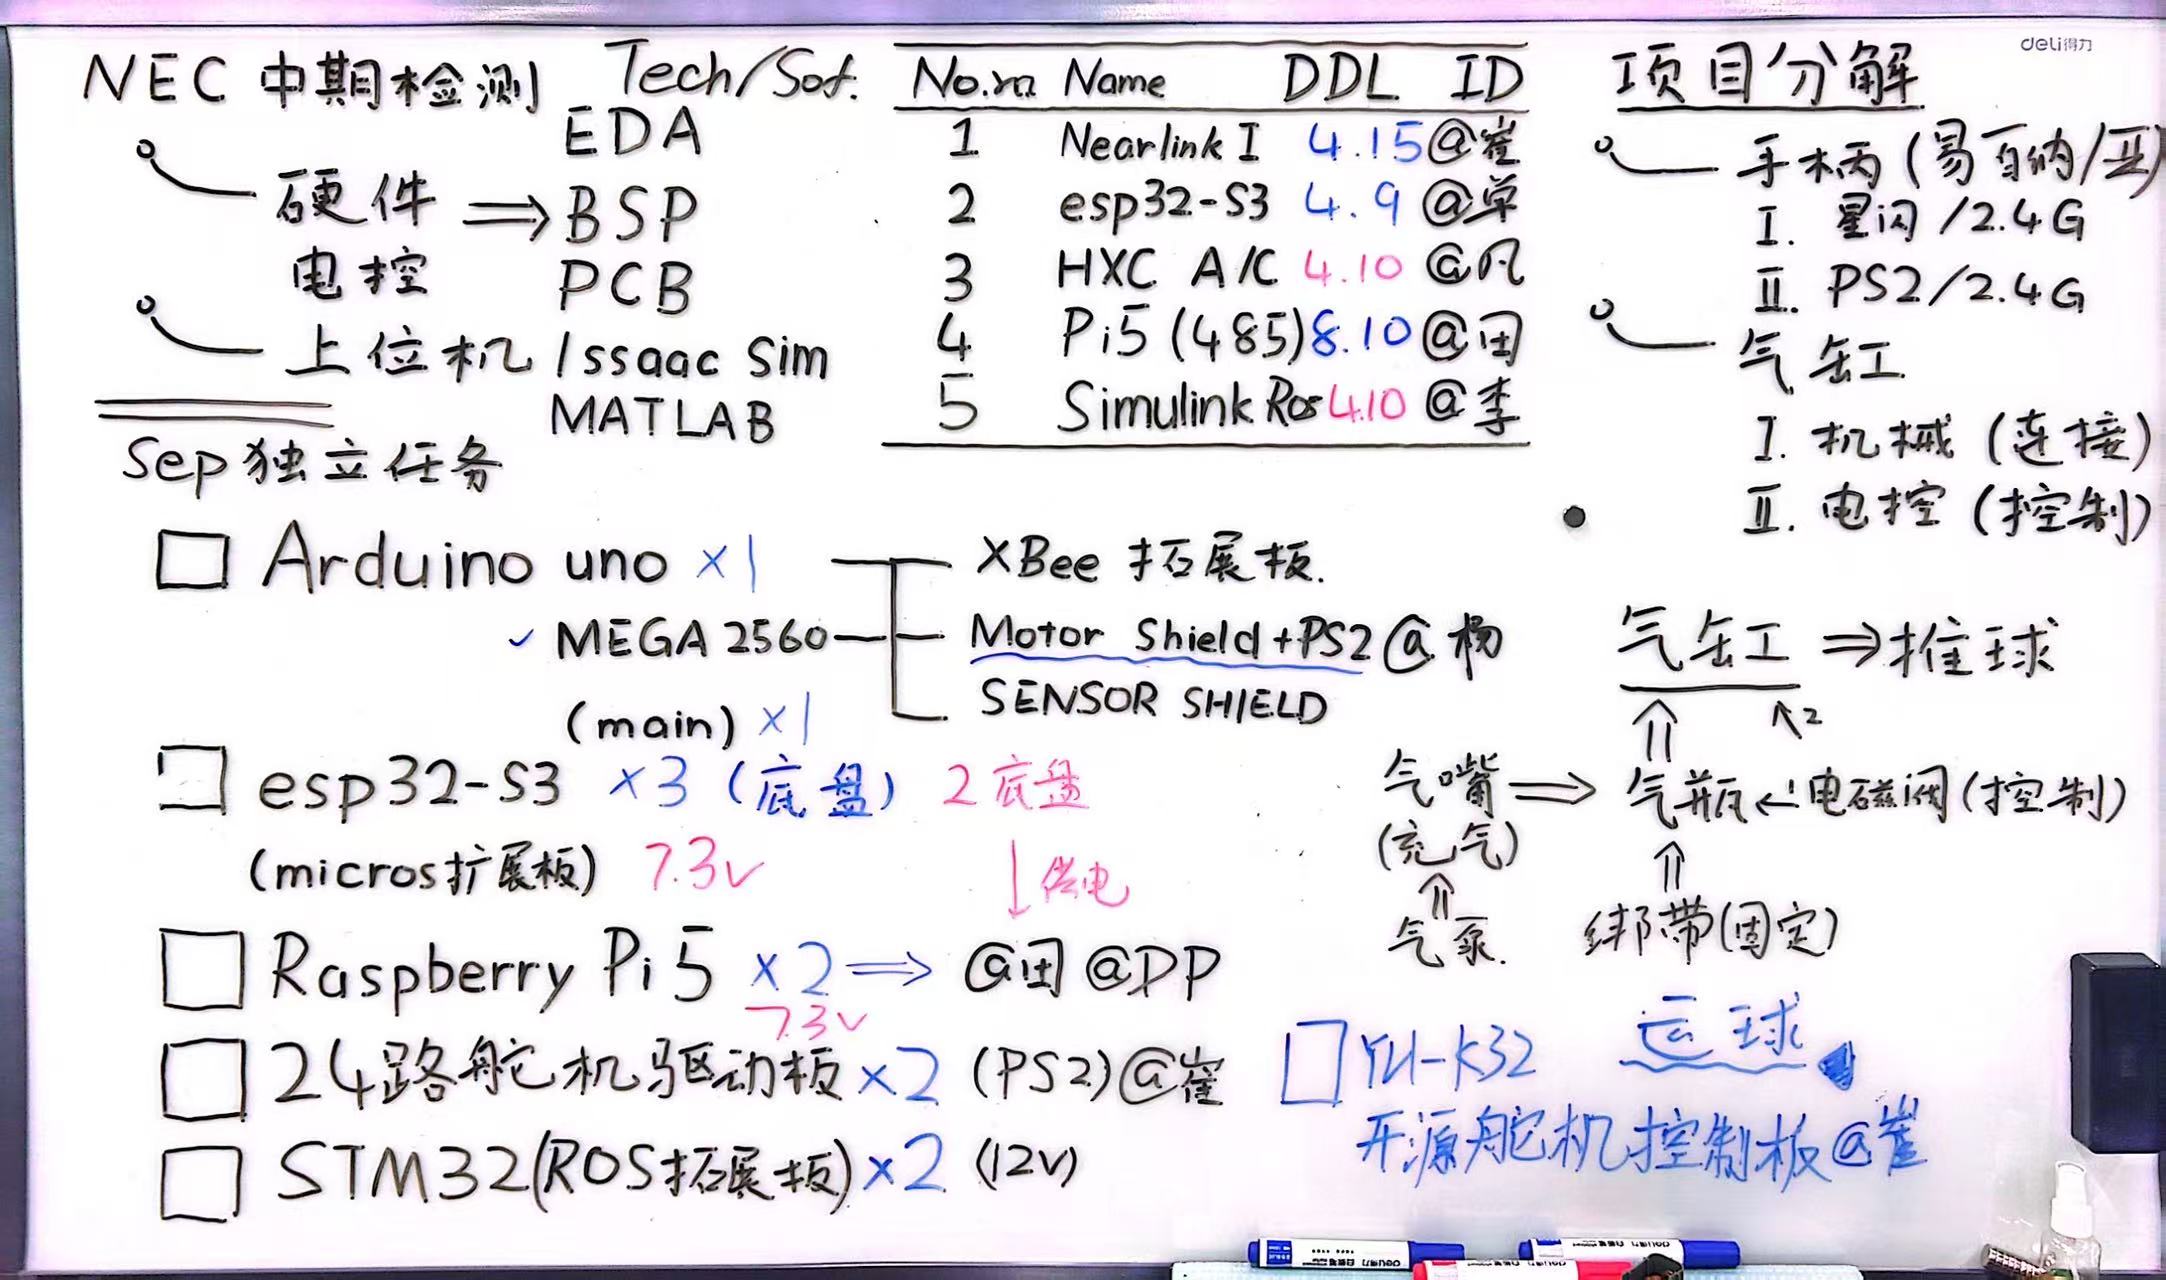 NEC 中期检测
硬件 ⇒
电控
上位机
Tech/Sof.
EDA
BSP
PCB
Issaac Sim
MATLAB
No.m Name DDL ID
1 Nearlink I 4.15 @崔
2 esp32-S3 4.9 @单
3 HXC A/C 4.10 @凡
4 Pi5 (485) 8.10 @田
5 Simulink Ros 4.10 @李
项目分解
手柄 (易百纳/亚)
I. 星闪/2.4G
II. PS2/2.4G
气缸
I. 机械 (连接)
II. 电控 (控制)
Sep独立任务
Arduino uno ×1
✓ MEGA 2560
(main) ×1
XBee 拓展板.
Motor Shield+PS2 @杨
SENSOR SHIELD
esp32-S3 ×3 (底盘) 2底盘
(micros扩展板) 7.3v ↓供电
Raspberry Pi 5 ×2 ⇒ @田 @DP
7.3v
24路舵机驱动板 ×2 (PS2) @崔
STM32(ROS拓展板) ×2 (12V)
气缸 ⇒ 推球
⇑ ↖2
气嘴 ⇒ 气瓶 ← 电磁阀 (控制)
(充气) ⇑
⇑
气泵. 绑带(固定)
运球
YH-K32
开源舵机控制板@崔
deli得力